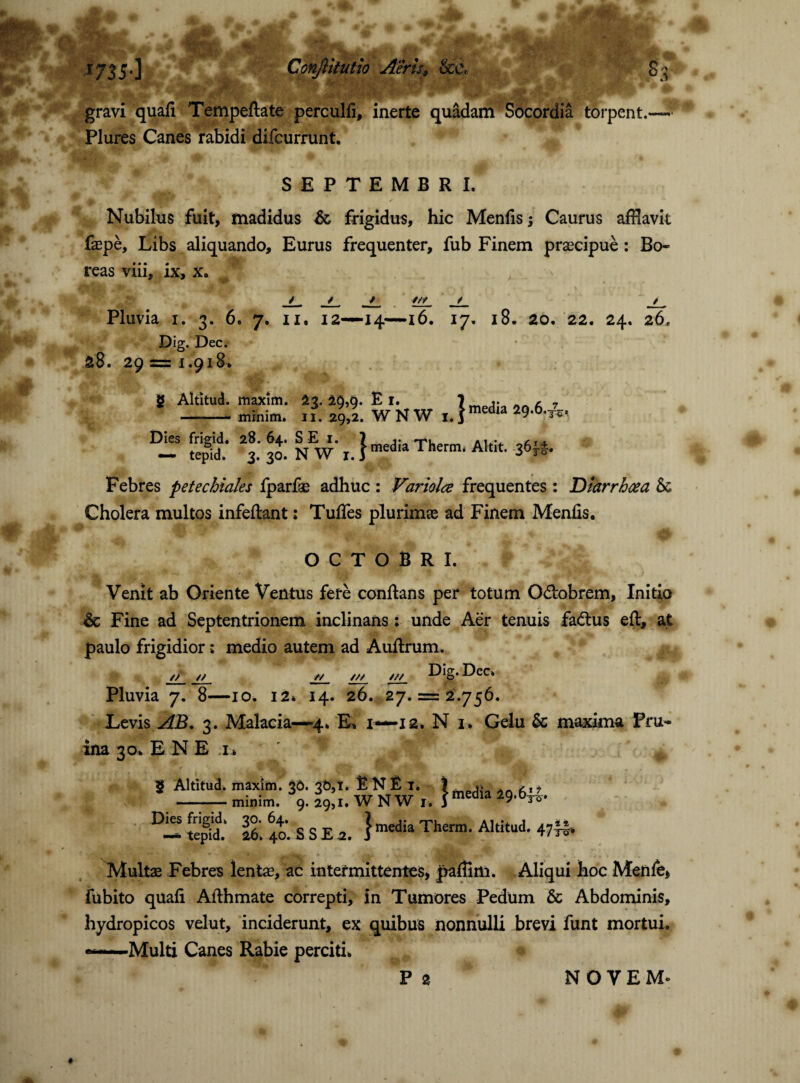 1735.] Conſtitutio Aëris, &c. 83
gravi quaſi Tempeſtate perculſi, inerte quâdam Socordiâ torpent.——
Plures Canes rabidi diſcurrunt.
SEPTEMBRI.
Nubilus fuit, madidus & frigidus, hic Menſis; Caurus afflavit
ſæpè, Libs aliquando, Eurus frequenter, ſub Finem præcipuè: Bo-
reas viii, ix, x.
Pluvia 1. 3. 6. 7. 11. 12—14—16. 17. 18. 20. 22. 24. 26.
Dig. Dec.
28. 29 = 1.918.
☿ Altitud. maxim. 23. 29,9. E 1. } media 29.6.7/10,
——— minim. 11. 29,2. W N W 1.
Dies frigid. 28. 64. S E 1. } media Therm. Altit. 36 14/30.
— tepid. 3. 30. N W 1.
Febres petechiales ſparſæ adhuc: Variolæ frequentes: Diarrhœa &
Cholera multos infeſtant: Tuſſes plurimæ ad Finem Menſis.
OCTOBRI.
Venit ab Oriente Ventus ferè conſtans per totum Octobrem, Initio
& Fine ad Septentrionem inclinans: unde Aër tenuis factus eſt, at
paulo frigidior: medio autem ad Auſtrum.
Dig. Dec.
Pluvia 7. 8—10. 12. 14. 26. 27. = 2.756.
Levis AB. 3. Malacia—4. E. 1—12. N 1. Gelu & maxima Pru-
ina 30. E N E 1.
☿ Altitud. maxim. 30. 30,1. E N E 1. } media 29.6
——— minim. 9. 29,1. W N W 1.
Dies frigid. 30. 64. } media Therm. Altitud. 47
— tepid. 26. 40. S S E 2.
Multæ Febres lentæ, ac intermittentes, paſſim. Aliqui hoc Menſe,
ſubito quaſi Aſthmate correpti, in Tumores Pedum & Abdominis,
hydropicos velut, inciderunt, ex quibus nonnulli brevi ſunt mortui.
——Multi Canes Rabie perciti.
P 2 NOVEM-